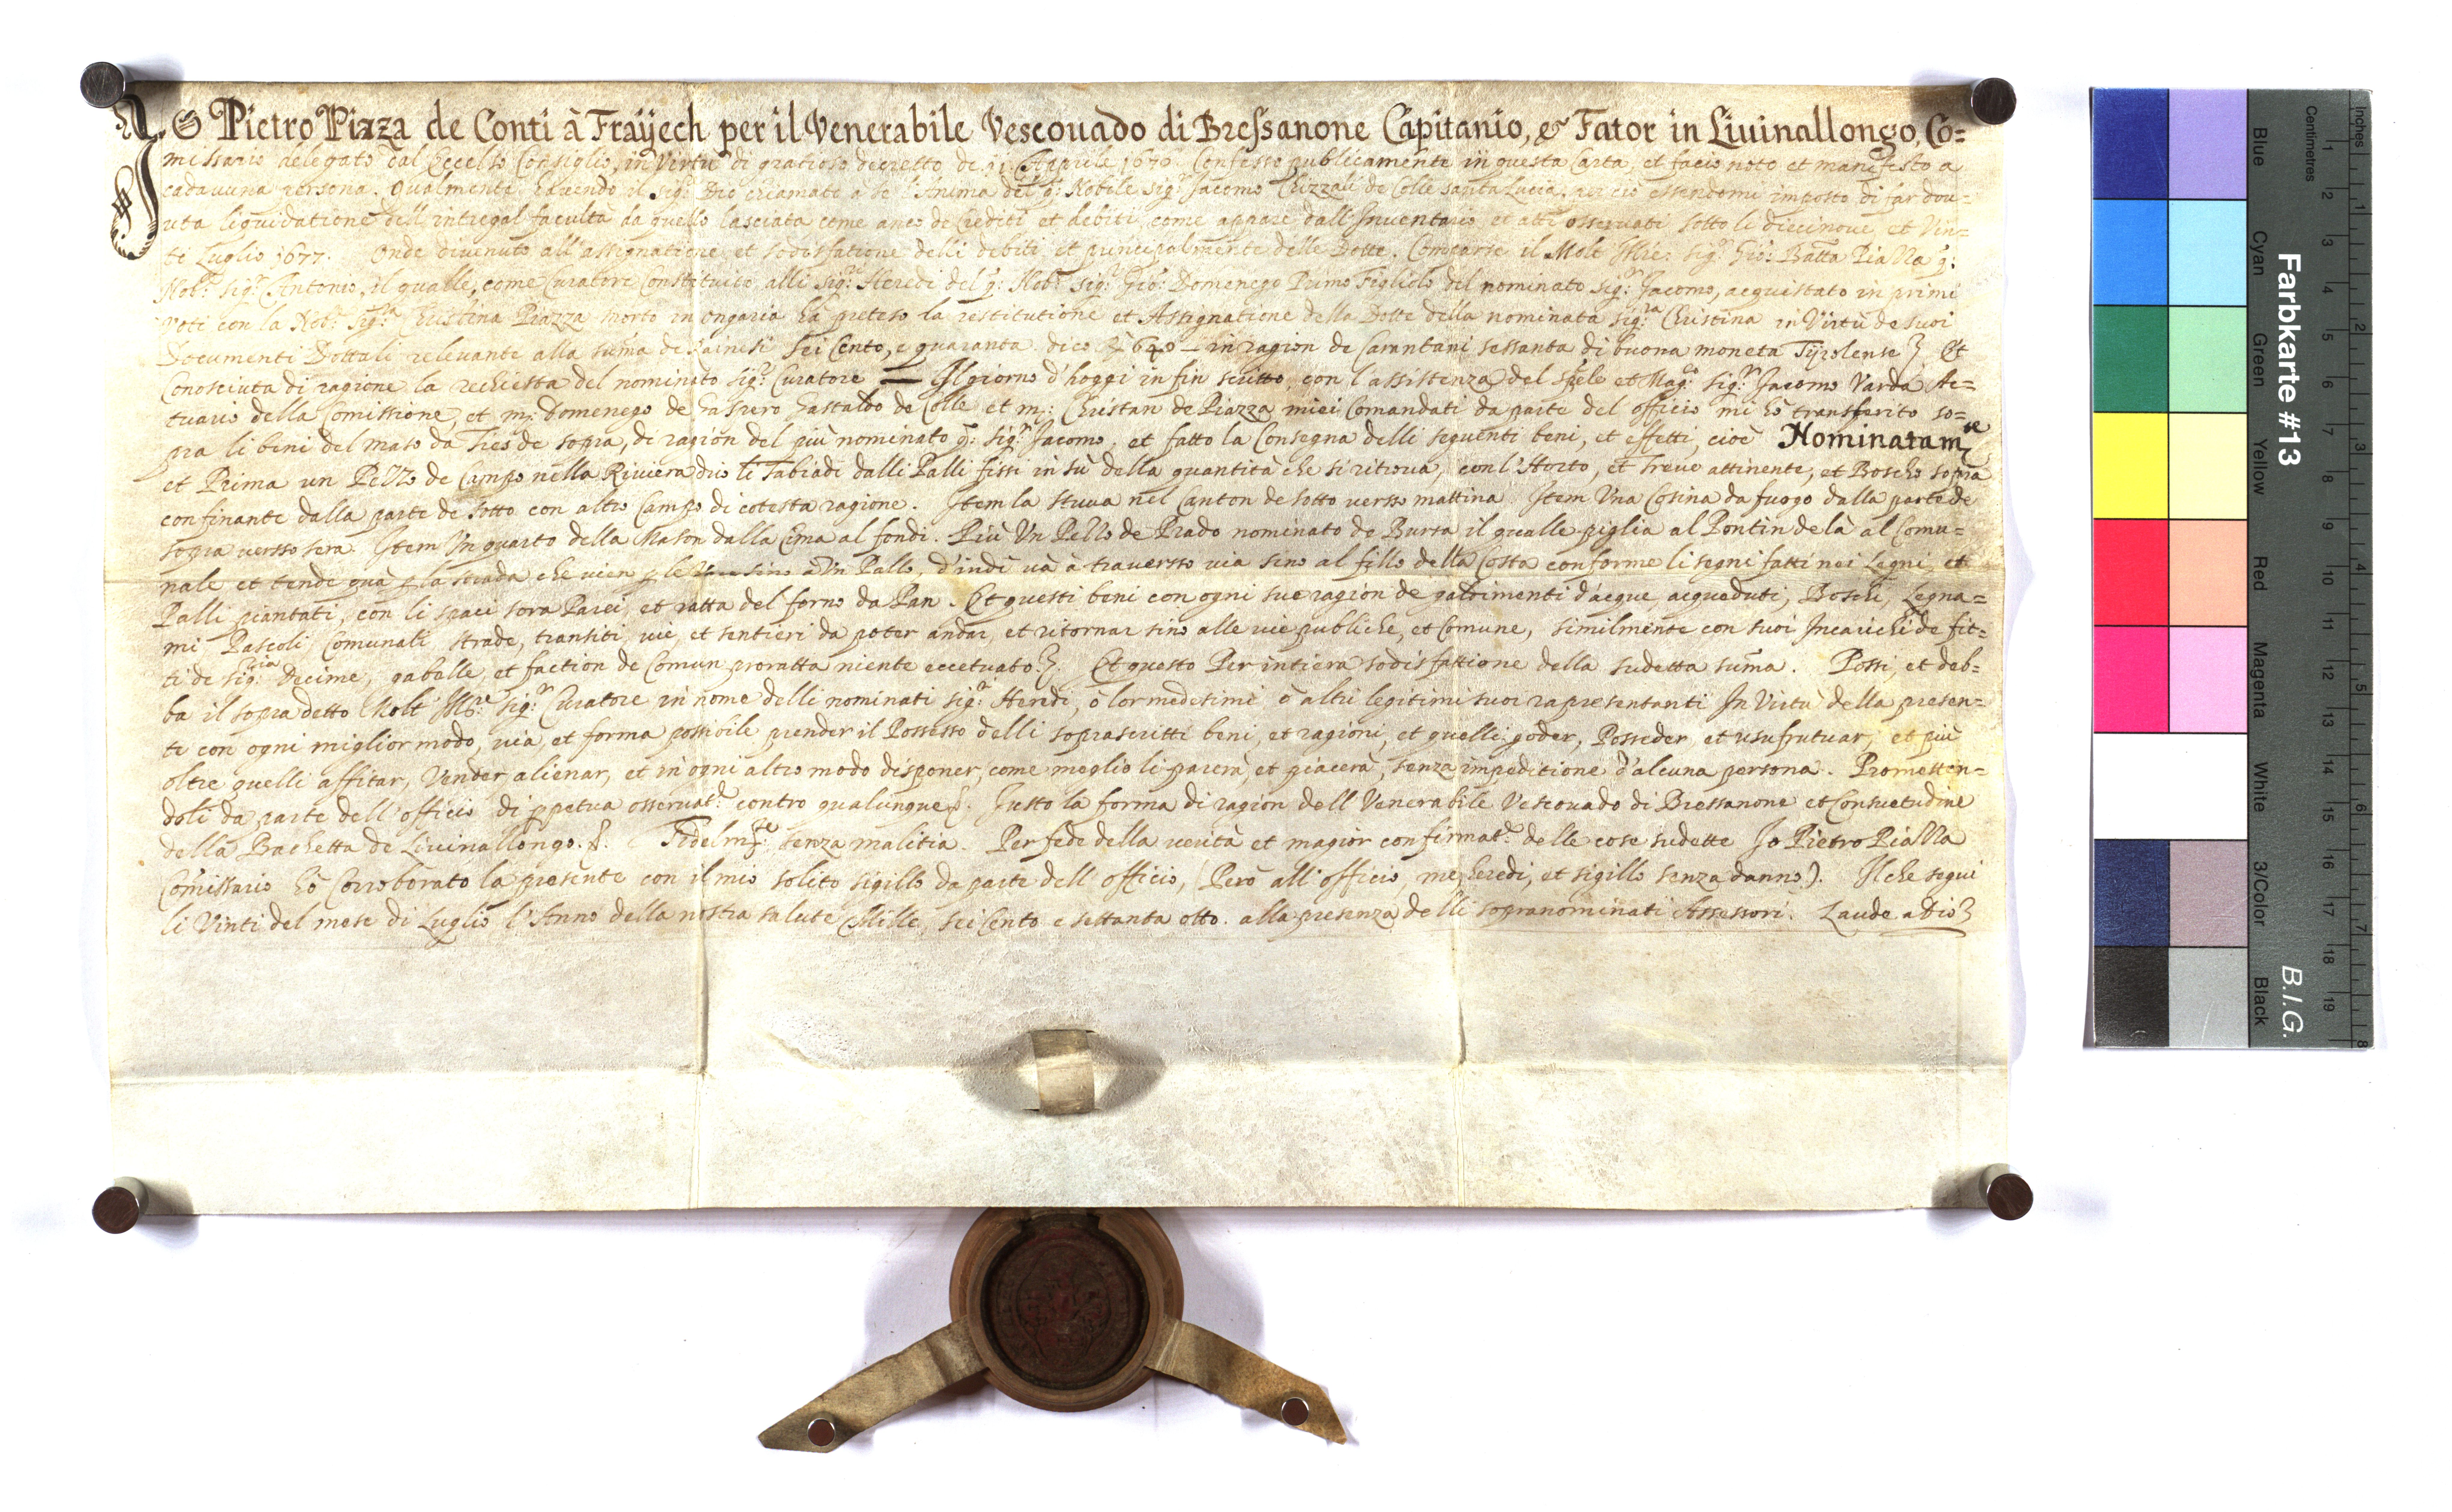 IO Pietro Piazza de Conti à Fraÿech per il Venerabile Vescouado di Bressanone Capitanio, & Fator in Liuinallongo, Co=
missario delegato dal Eccelso Consiglio, in Virtù di gratioso decretto de Apprile Confesso publicamente in questa Carta, et facio noto et manifesto a
cadauuna persona. Qualmente hauendo il Sigr: Dio chiamato a se l'Anima del q: Nobile Sigr: Jacomo Chizzali de Colle santa Lucia. per ciò essendomi imposto di far dou=
uta liquidatione dell'intregal facultà da quello lasciata come anco de Crediti et debiti, come appare dall'Inuentario et atti osseruati sotto li diecinoue, et Vin=
ti Luglio 1677. Onde diuenuto all'assignatione et sodisfatione delli debiti, et principalmente delle Dotte. Comparse il Molt Illre: Sigr: Gio: Batta Piazza q:
Nob: Sigr: Antonio, il qualle, come Curatore Constituito alli Sigri Heredi del q: Nob: Sigr: Gio: Domenego Primo Figliolo del nominato Sigr: Jacomo, acquistato in primi
Voti con la Nob: Sigra Christina Piazza morto in ongaria hà preteso la restitutione et Assignatione della Dotte della nominata Sigra Christina in Virtù de suoi
Documenti Dottali releuante alla suma de Rainesi Sei Cento, e quaranta dico 640 – in ragion de Carantani sessanta di buona moneta Tÿrolense. Et
Conosciuta di ragione la rechiesta del nominato Sigr: Curatore — Il giorno d'hoggi in fin scritto, con l'assistenza del Spele et Mag: Sigr Jacomo Varda Ac=
tuario della Comissione, et m: Domenego de Gaspero Gastaldo de Colle et m: Christan de Piazza miei Comandati da parte del officio mi hò transferito so=
pra li beni del maso da Ties de sopra, di ragion del più nominato q: Sigr: Jacomo, et fatto la Consegna delli seguenti beni, et effetti, cioè Nominatamte
et Prima un Pezzo de Campo nella Riuiera drio li Tabiadi dalli Palli fissi in sù della quantità che si ritroua, con l'Horto, et Treuo attinente, et Boscho sopra
confinante dalla parte de sotto con altro Campo di cotesta ragione. Item la stuua nel Canton de sotto verso mattina. Item Vna Cosina da fuogo dalla parte de
sopra versso sera. Item Vn quarto della Mason dalla Cima al fondi. Più Vn Pezzo de Prado nominato de Bursa il qualle piglia al Pontin de là al Comu=
nale et tende quà p la strada che vien p le sino à Vn Pallo, d'indi và à trauersso via sino al fillo della Costa conforme li segni fatti nei Legni, et
Palli piantati, con li spaci sora Parei, et ratta del forno da Pan. Et questi beni con ogni sue ragion de patrimenti d'acque, acqueduti, Boschi, Legna=
mi Pascoli, Comunali, strade, transiti, vie, et sentieri da poter andar, et ritornar sino alle vie publiche, et Comune, similmente con suoi Incarichi de fit=
ti de Sigria Decime, gabelle, et faction de Comun proratta niente eccetuato. Et questo Per intiera sodisfattione della sudetta suma. Possi, et deb=
ba il sopra detto Molt Illre: Sigr: Curatore in nome delli nominati Sigri Heredi, ò lor medesimi ò altri legitimi suoi rapresentanti In Virtù della presen=
te con ogni miglior modo, via, et forma possibile prender il Possesso delli soprascritti beni, et ragioni, et quelli goder, Posseder, et usufrutuar, et più
oltre quelli affitar, Vender, alienar, et in ogni altro modo disponer, come meglio li parerà, et piacerà, senza impeditione d'alcuna persona. Prometten=
doli da parte dell'officio di ppetua osseruat: contro qualunque. Justo la forma di ragion dell Venerabile Vescouado di Bressanone et Consuetudine
della Bachetta de Liuinallongo. Fidelmte: senza malitia. Per fede della verità et magior confirmat: delle cose sudette Jo Pietro Piazza
Comissario hò Corroborato la presente con il mio solito sigillo da parte dell'officio, (Però all'officio, me heredi, et sigillo senza danno). Il che seguì
li Vinti del mese di Luglio l'Anno della nostra salute Mille, sei Cento e settanta otto. alla presenza delli sopranominati Assessori. Laude a Dio
Farbkarte #13
B.I.G.
Inches
Centimetres
Blue
Cyan
Green
Yellow
Red
Magenta
White
3/Color
Black
1 2 3 4 5 6 7 8 9 10 11 12 13 14 15 16 17 18 19
1 2 3 4 5 6 7 8